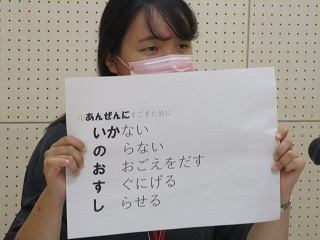 ①あんぜんにすごすために
いかない
のらない
おおごえをだす
すぐにげる
しらせる